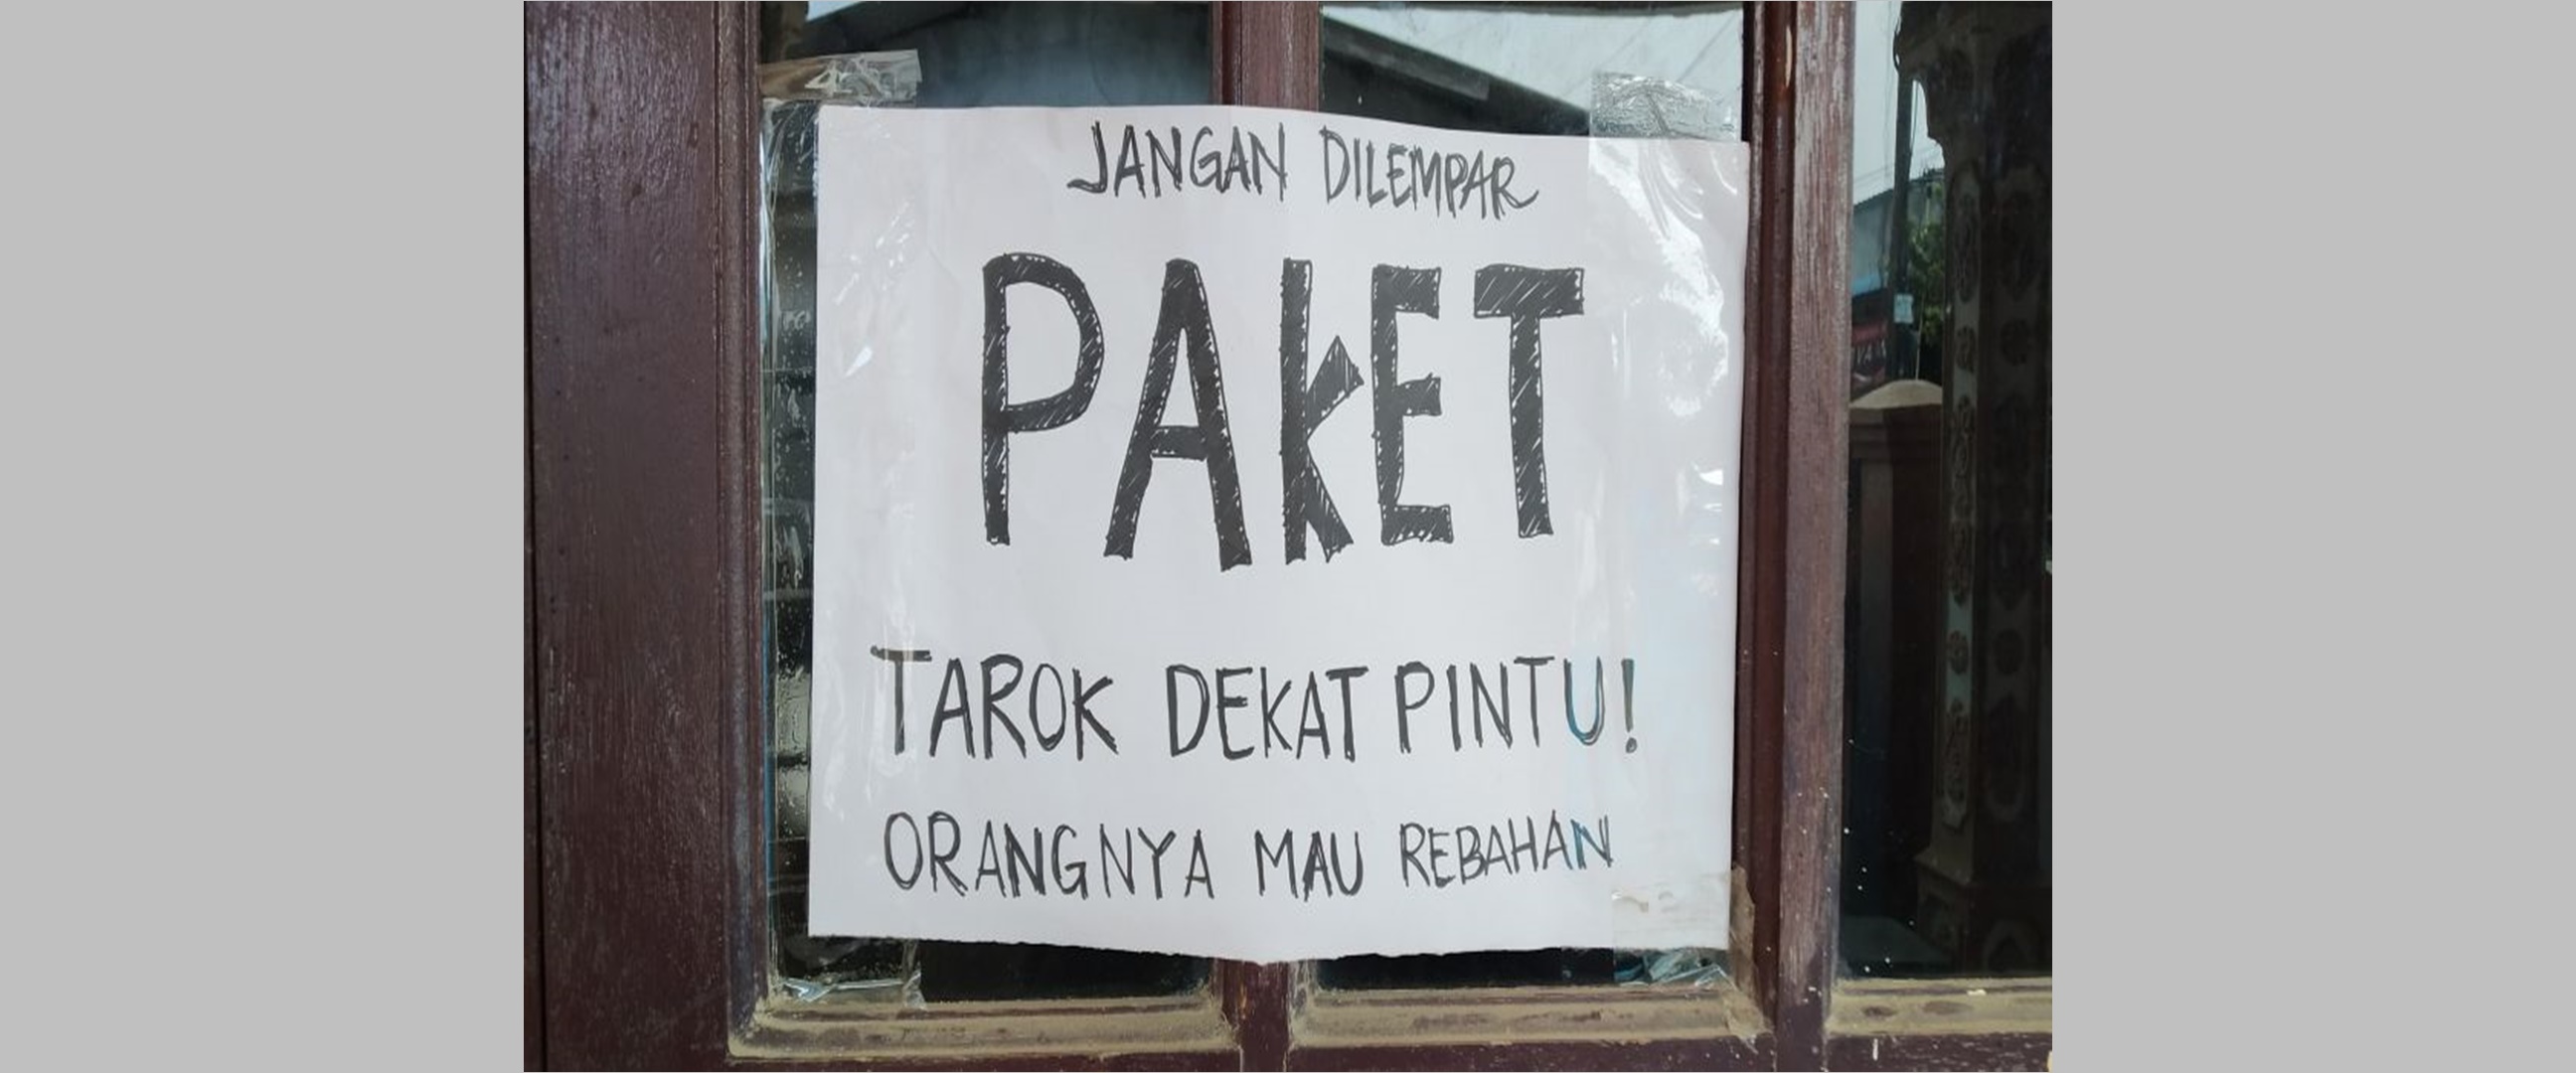 JANGAN DILEMPAR
PAKET
TAROK DEKAT PINTU!
ORANGNYA MAU REBAHAN